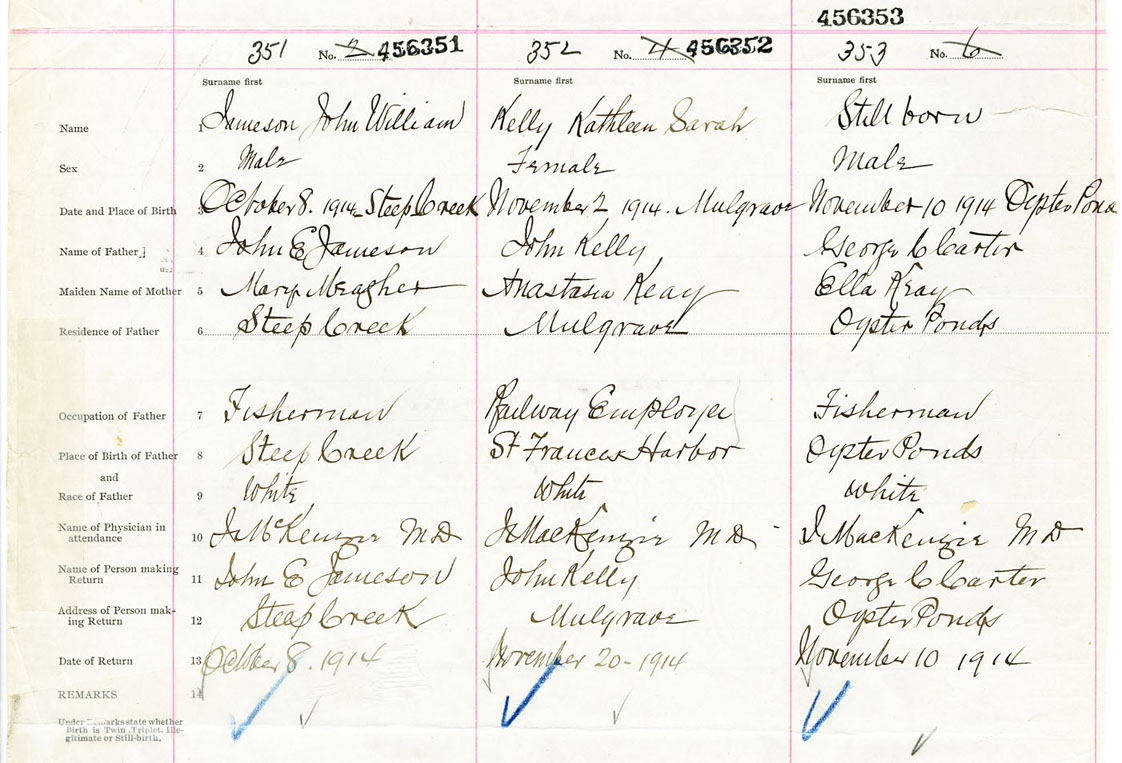 456353
351 No. 2 456351 352 No. 4 456352 353 No. 6
Surname first Surname first Surname first
Name 1 Jameson John William Kelly Kathleen Sarah Still born
Sex 2 Male Female Male
Date and Place of Birth 3 October 8. 1914 Steep Creek November 2 1914. Mulgrave November 10 1914 Oyster Pond
Name of Father 4 John E Jameson John Kelly George C Carter
Maiden Name of Mother 5 Mary Meagher Anastasia Keay Ella Keay
Residence of Father 6 Steep Creek Mulgrave Oyster Ponds
Occupation of Father 7 Fisherman Railway Employee Fisherman
Place of Birth of Father 8 Steep Creek St Frances Harbor Oyster Ponds
and
Race of Father 9 White White White
Name of Physician in
attendance 10 J McKenzie MD J MacKenzie MD J MacKenzie MD
Name of Person making
Return 11 John E Jameson John Kelly George C Carter
Address of Person mak-
ing Return 12 Steep Creek Mulgrave Oyster Ponds
Date of Return 13 October 8. 1914 November 20 - 1914 November 10 1914
REMARKS 14
Under Remarks state whether
Birth is Twin, Triplet, Ille-
gitimate or Still-birth.